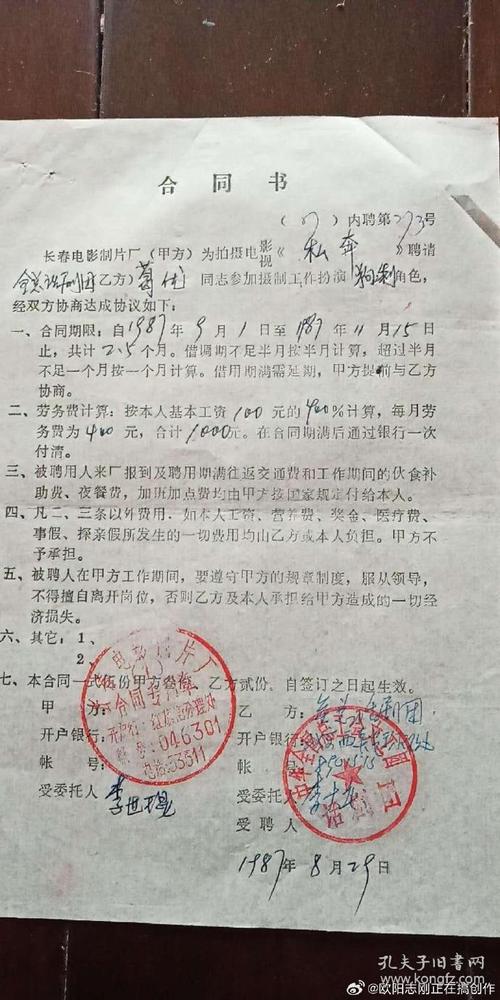 合同书
(87)内聘第273号
长春电影制片厂(甲方)为拍摄电影视《私奔》聘请
全总话剧团(乙方)葛优同志参加摄制工作扮演 角色,
经双方协商达成协议如下:
一、合同期限:自1987年9月1日至1987年11月15日
止,共计2.5个月。借调期不足半月按半月计算,超过半月
不足一个月按一个月计算。借用期满需延期,甲方提前与乙方
协商。
二、劳务费计算:按本人基本工资100元的400%计算,每月劳
务费为400元,合计1000元。在合同期满后通过银行一次
付清。
三、被聘用人来厂报到及聘用期满往返交通费和工作期间的伙食补
助费、夜餐费,加班加点费均由甲方按国家规定付给本人。
四、凡二、三条以外费用,如本人工资、营养费、奖金、医疗费、
事假、探亲假所发生的一切费用均由乙方或本人负担。甲方不
予承担。
五、被聘人在甲方工作期间,要遵守甲方的规章制度,服从领导,
不得擅自离开岗位,否则乙方及本人承担给甲方造成的一切经
济损失。
六、其它:1、
2、
七、本合同一式伍份甲方叁份,乙方贰份,自签订之日起生效。
甲 方:
开户银行:
帐 号:
受委托人
乙 方:全总话剧团
开户银行:
帐 号:
受委托人
受聘人
电影制片厂
合同专用章
046301
电话:53311
话剧团
1987年8月29日
孔夫子旧书网
www.kongfz.com
@欧阳志刚正在搞创作